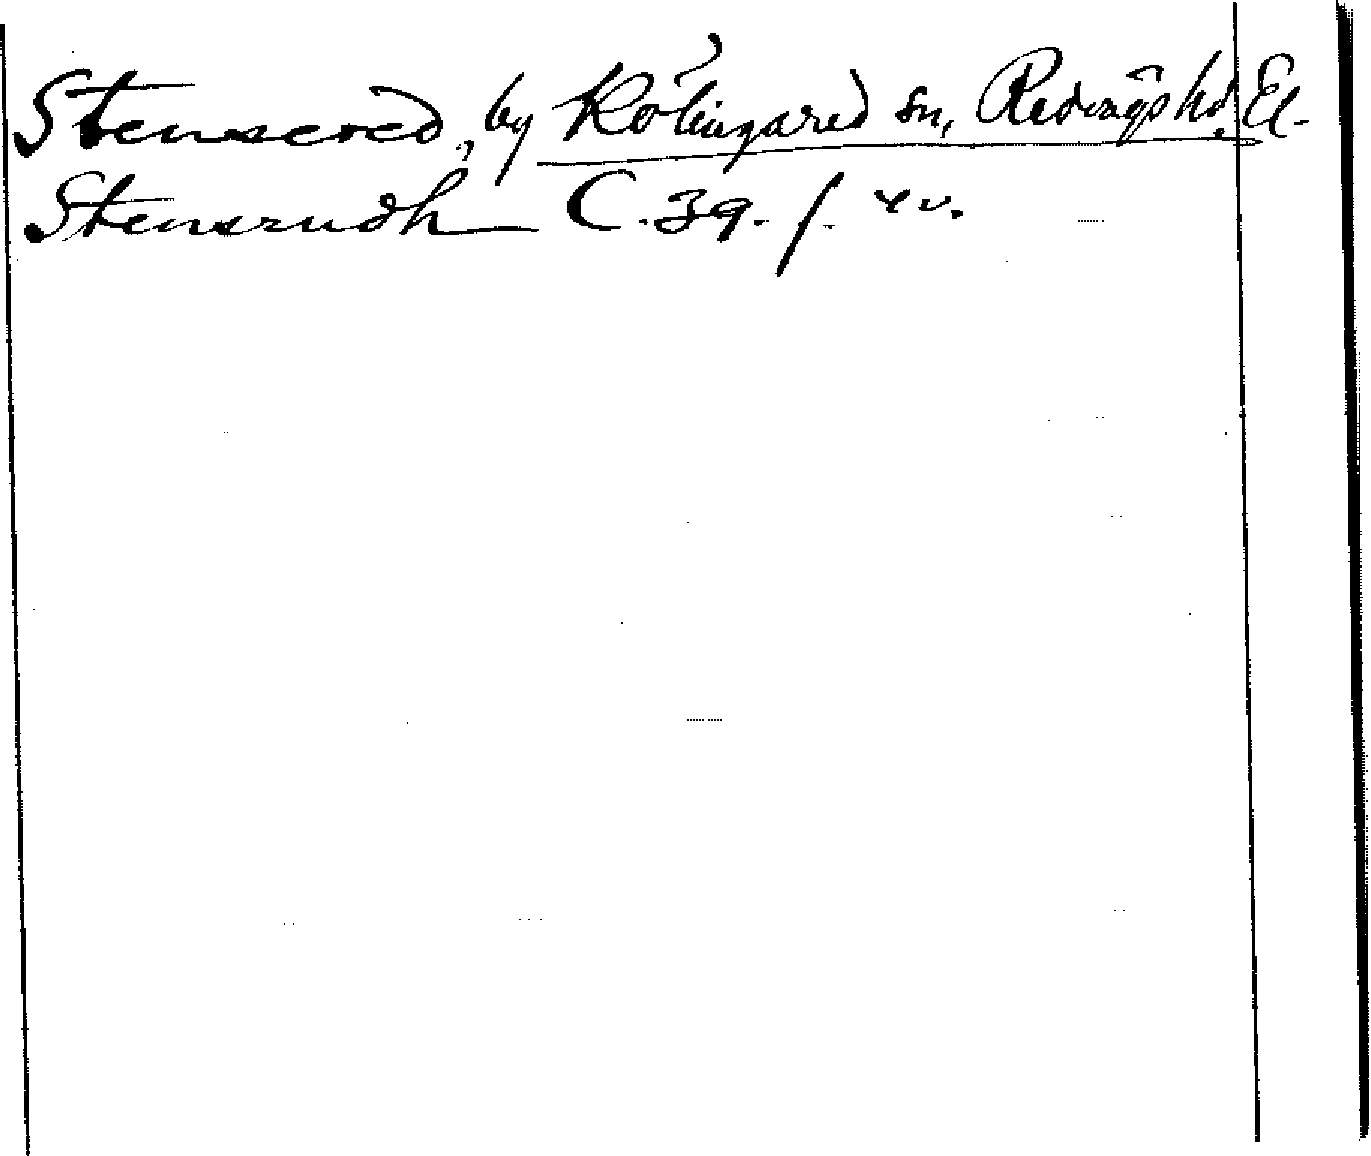 Stensered, by Kölingared sn, Redvägs hd, El-
Stensrudh C. 39. f. xv.